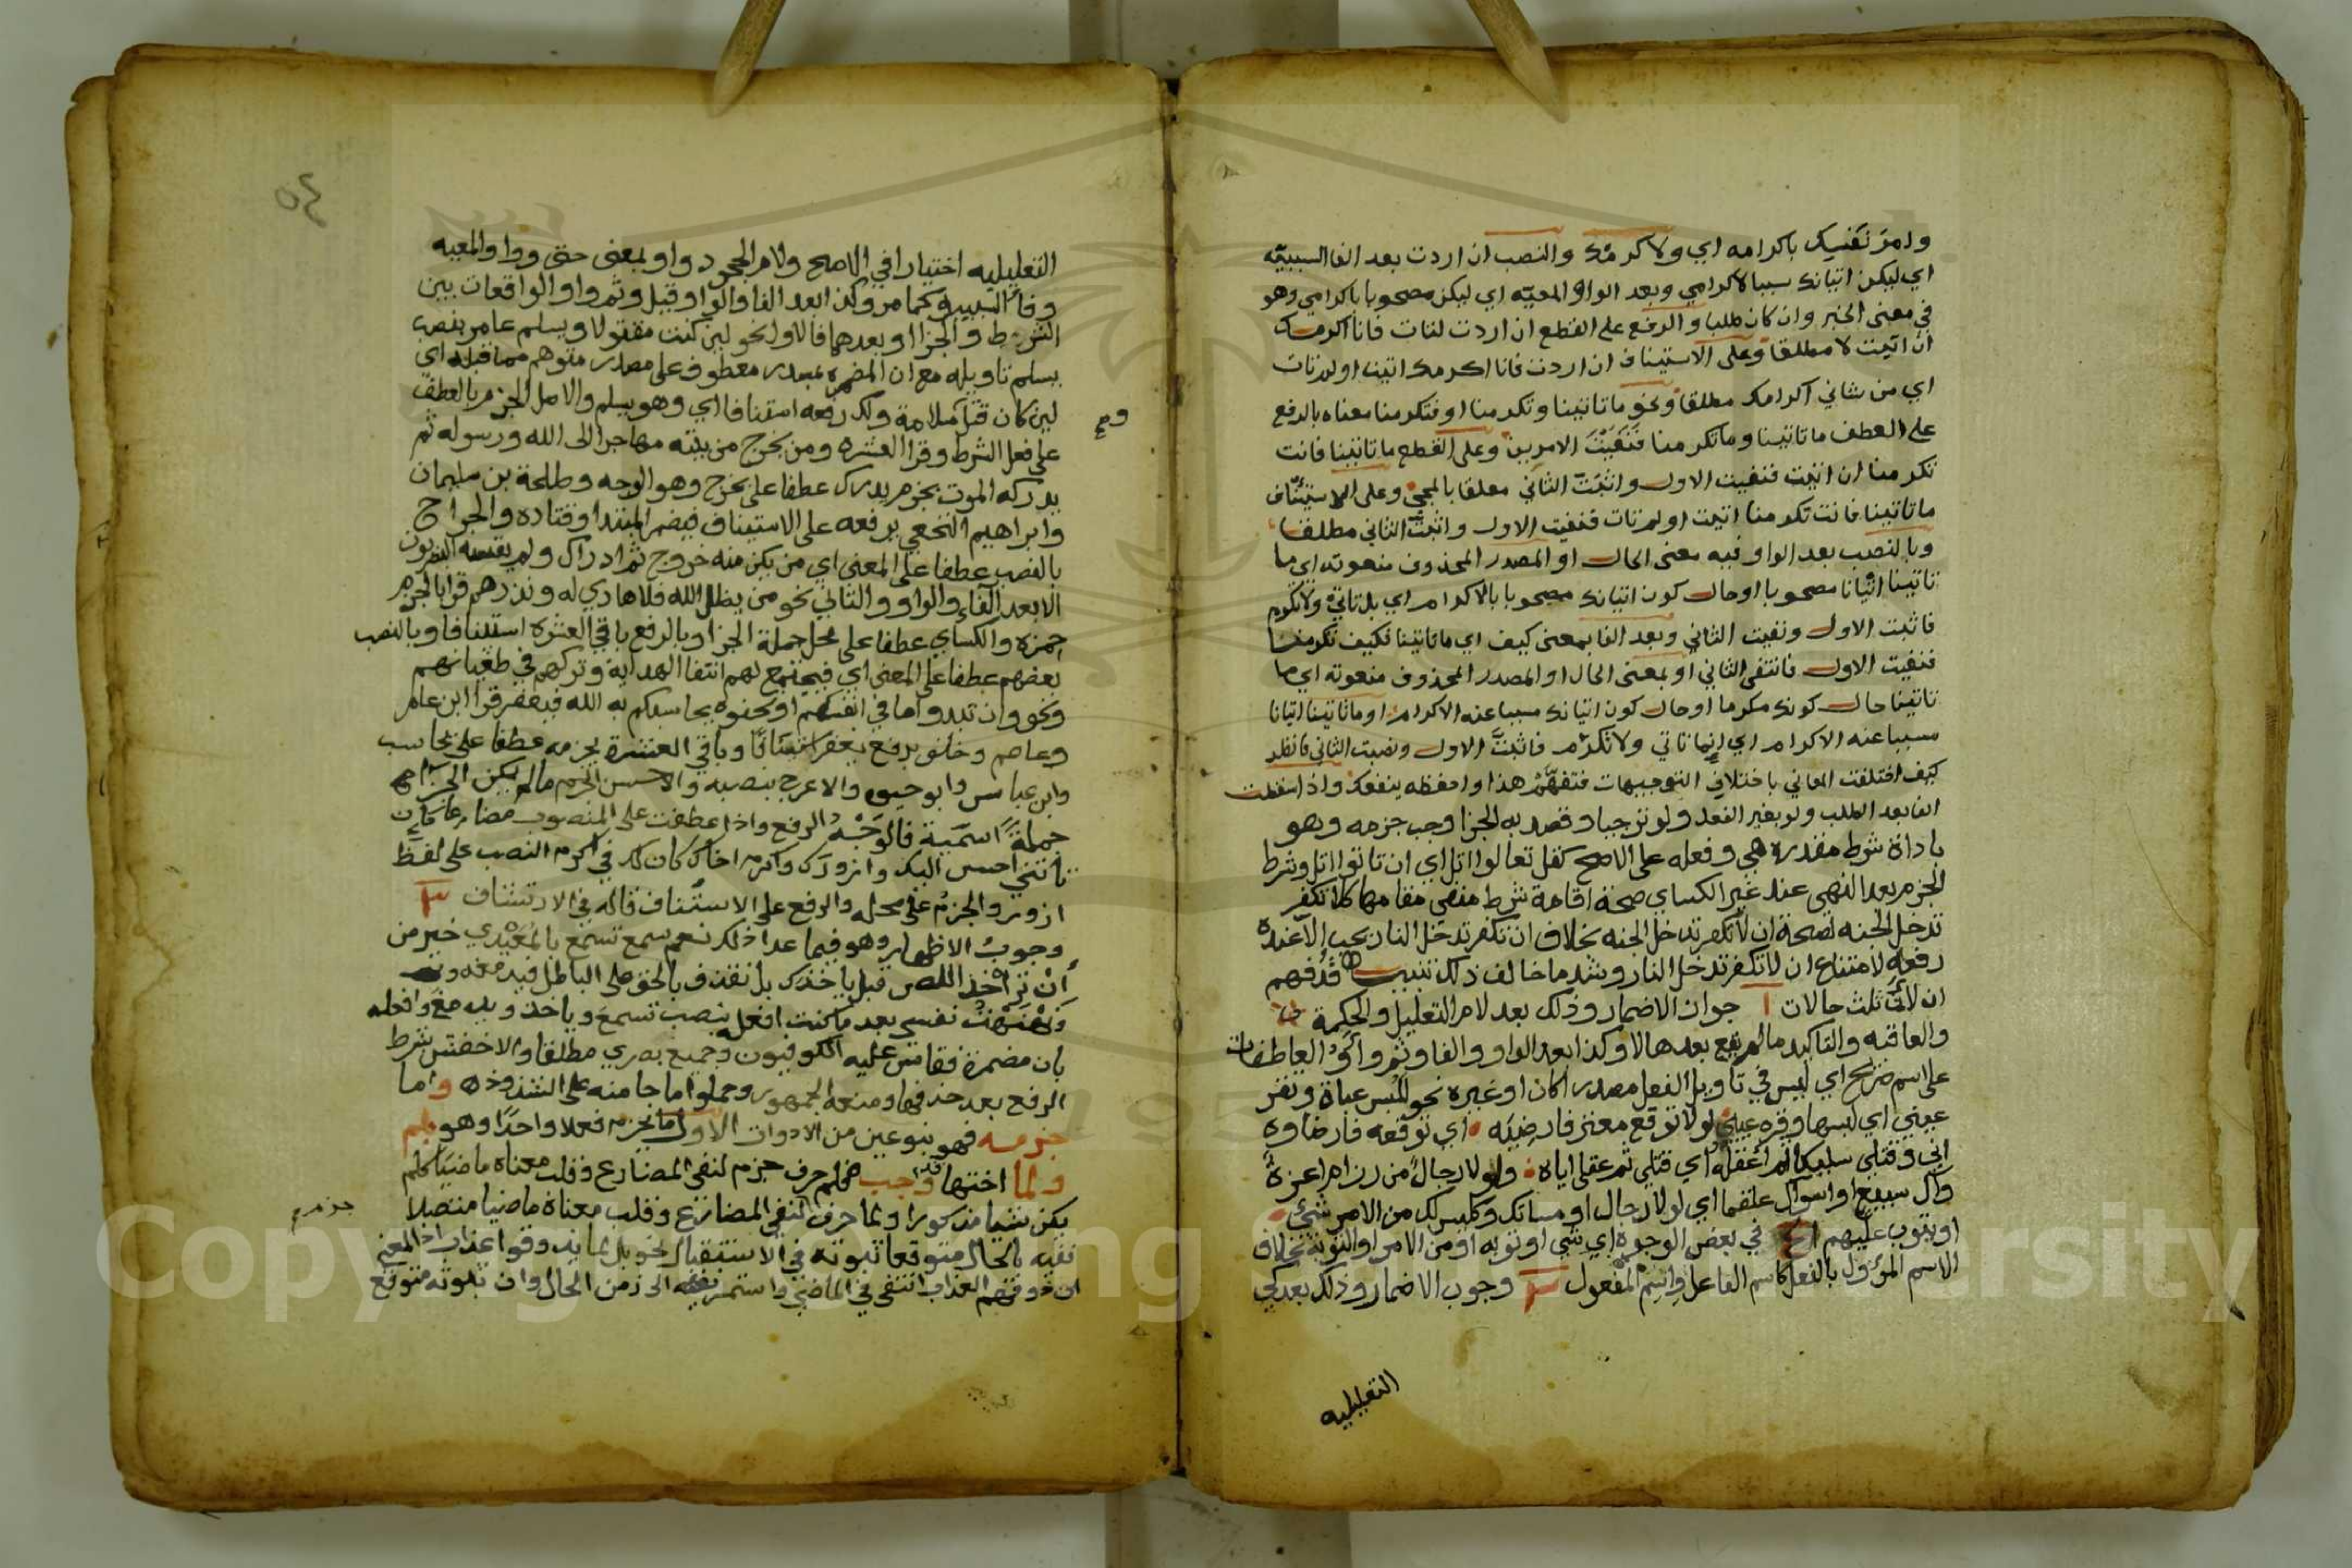 وامر نفسك باكرامه اي ولاكرمك والنصب ان اردت بعد الفا السببيه
اي ليكن اتيانك سببا لاكرامي وبعد الواو المعيه اي ليكن مصحوبا باكرامي وهو
في معنى الخبر وان كان طلبا والرفع على القطع ان اردت لتات فانا اكرمك
ان اتيت لا مطلقا وعلى الاستيناف ان اردت فانا اكرمك اتيت او لم تات
اي من شاني اكرامك مطلقا ونحو ما تاتينا وتكرمنا او فتكرمنا معناه بالرفع
على العطف ما تاتينا وما تكرمنا فنفيت الامرين وعلى القطع ما تاتينا فانت
تكرمنا ان اتيت فنفيت الاول واثبت الثاني معلقا بالمجئ وعلى الاستيناف
ما تاتينا فانت تكرمنا اتيت او لم تات فنفيت الاول واثبت الثاني مطلقا
وبالنصب بعد الواو فيه معنى الحال او المصدر المحذوف منعوته اي ما
تاتينا اتيانا مصحوبا او حال كون اتيانك مصحوبا بالاكرام اي بل تاتي ولا تكرم
فاثبت الاول ونفيت الثاني وبعد الفا بمعنى كيف اي ما تاتينا فكيف تكرمنا
فنفيت الاول فانتفى الثاني او بمعنى الحال او المصدر المحذوف منعوته اي ما
تاتينا حال كونك مكرما او حال كون اتيانك مسببا عنه الاكرام او ما تاتينا اتيانا
مسببا عنه الاكرام اي انما تاتي ولا تكرم فاثبت الاول ونفيت الثاني فانظر
كيف اختلفت المعاني باختلاف التوجيهات فتفهم هذا واحفظه ينفعك واذا سقطت
الفا بعد الطلب ولو بغير الفعل ولو ترجيا وقصد به الجزا وجب جزمه وهو
باداة شرط مقدره هي وفعله على الاصح كقل تعالوا اتل اي ان تاتوا اتل وشرط
الجزم بعد النهي عند غير الكساي صحة اقامة شرط منفي مقامها كلا تكفر
تدخل الجنه لصحة ان لا تكفر تدخل الجنه بخلاف ان تكفر تدخل النار يجب الا عنده
رفعه لامتناع ان لا تكفر تدخل النار وشد ما خالف ذلك تنبيه قد فهم
ان لان ثلث حالات ا جواز الاضمار وذلك بعد لام التعليل والحكمة
والعاقبه والتاكيد ما لم يقع بعدها لا وكذا بعد الواو والفا وثم واو العاطفات
على اسم صريح اي ليس في تاويل الفعل مصدرا كان او غيره نحو للبس عباة وتقر
عيني اي لبسها وقره عيني لولا توقع معتر فارضيه اي توقعه فارضاوه
اني وقتلي سليكا ثم اعقله اي قتلي ثم عقلي اياه ولولا رجال من رزام اعزة
وال سبيع او اسوال علقما اي لولا رجال او مساتك وكليس لك من الامر شئ
او يتوب عليهم الخ في بعض الوجوه اي شي او توبه او من الامر او التوبة بخلاف
الاسم المؤول بالفعل كاسم الفاعل واسم المفعول وجوب الاضمار وذلك بعد كي
التعليليه
٥٤
التعليليه اختيارا في الاصح ولام الجحود واو بمعنى حتى وواو المعيه
وفاء السببيه كما مر وكذا بعد الفا والواو قيل وثم واو الواقعات بين
الشرط والجزا او بعدهما فالاول نحو لين كنت مقتولا ويسلم عامر بنصب
يسلم تاويله مع ان المضمره بمصدر معطوف على مصدر متوهم مما قبله اي
لين كان قتل سلامة ولك رفعه استنافا اي وهو يسلم والاصل الجزم بالعطف
على فعل الشرط وقرا العشره ومن يخرج من بيته مهاجرا الى الله ورسوله ثم
يدركه الموت بجزم يدرك عطفا على يخرج وهو الوجه وطلحة بن سليمان
وابراهيم النخعي برفعه على الاستيناف فيضمر المبتدا وقتاده والجراح
بالنصب عطفا على المعنى اي من يكن منه خروج ثم ادراك ولم يقسه البصريون
الا بعد الفاء والواو والثاني نحو من يضلل الله فلا هادي له ونذرهم قرا بالجزم
حمزه والكساي عطفا على محل جملة الجزا وبالرفع باقي العشره استينافا وبالنصب
بعضهم عطفا على المعنى اي فيجتمع لهم انتفا الهداية وتركهم في طغيانهم
ونحو وان تبدوا ما في انفسكم او تخفوه يحاسبكم به الله فيغفر قرا ابن عامر
وعاصم وخلف برفع يغفر استينافا وباقي العشرة بجزمه عطفا على يحاسب
وابن عباس وابو حيوه والاعرج بنصبه والاحسن الجزم ما لم يكن الجزا
جملة اسمية فالوجه الرفع واذا عطفت على المنصوب مضارعا كان
تاتني احسن اليك وازورك واكرم اخاك كان لك في اكرم النصب على لفظ
ازور والجزم على محله والرفع على الاستيناف قاله في الارتشاف
وجوب الاظهار وهو فيما عدا ذلك نعم سمع تسمع بالمعيدي خير من
ان تراه خذ اللص قبل ياخذك بل نقذف بالحق على الباطل فيدمغه
ونهنهت نفسي بعد ما كدت افعله بنصب تسمع وياخذ ويدمغ وافعله
بان مضمرة فقاس عليه الكوفيون وجميع بصري مطلقا والاخفش بشرط
الرفع بعد حذفها ومنعه الجمهور وحملوا ما جا منه على الشذوذ واما
جزمه فهو بنوعين من الادوات الاول ما يجزم فعلا واحدا وهو لم
ولما اختها فلم حرف جزم لنفي المضارع وقلب معناه ماضيا كلم
يكن شيا مذكورا ولما حرف لنفي المضارع وقلب معناه ماضيا متصلا
نفيه بالحال متوقعا ثبوته في الاستقبال نحو بل لما يذوقوا عذاب اذ المعنى
ان ذوقهم العذاب انتفى في الماضي واستمر نفيه الى زمن الحال وان ثبوته متوقع
جزم
Copyright © King Saud University